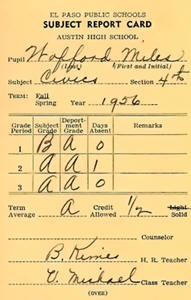 EL PASO PUBLIC SCHOOLS
SUBJECT REPORT CARD
AUSTIN HIGH SCHOOL
Pupil Wofford Miles
(Last) (First and Initial)
Subject Civics Section 4th
TERM: Fall
Spring Year 1956
Grade Period Subject Grade Deportment Grade Days Absent Remarks
1 B A 0
2 A A 1
3 A A 0
Term Average A Credit Allowed 1/2 Solid
Counselor
B. Rimes
H. R. Teacher
Class Teacher
(OVER)